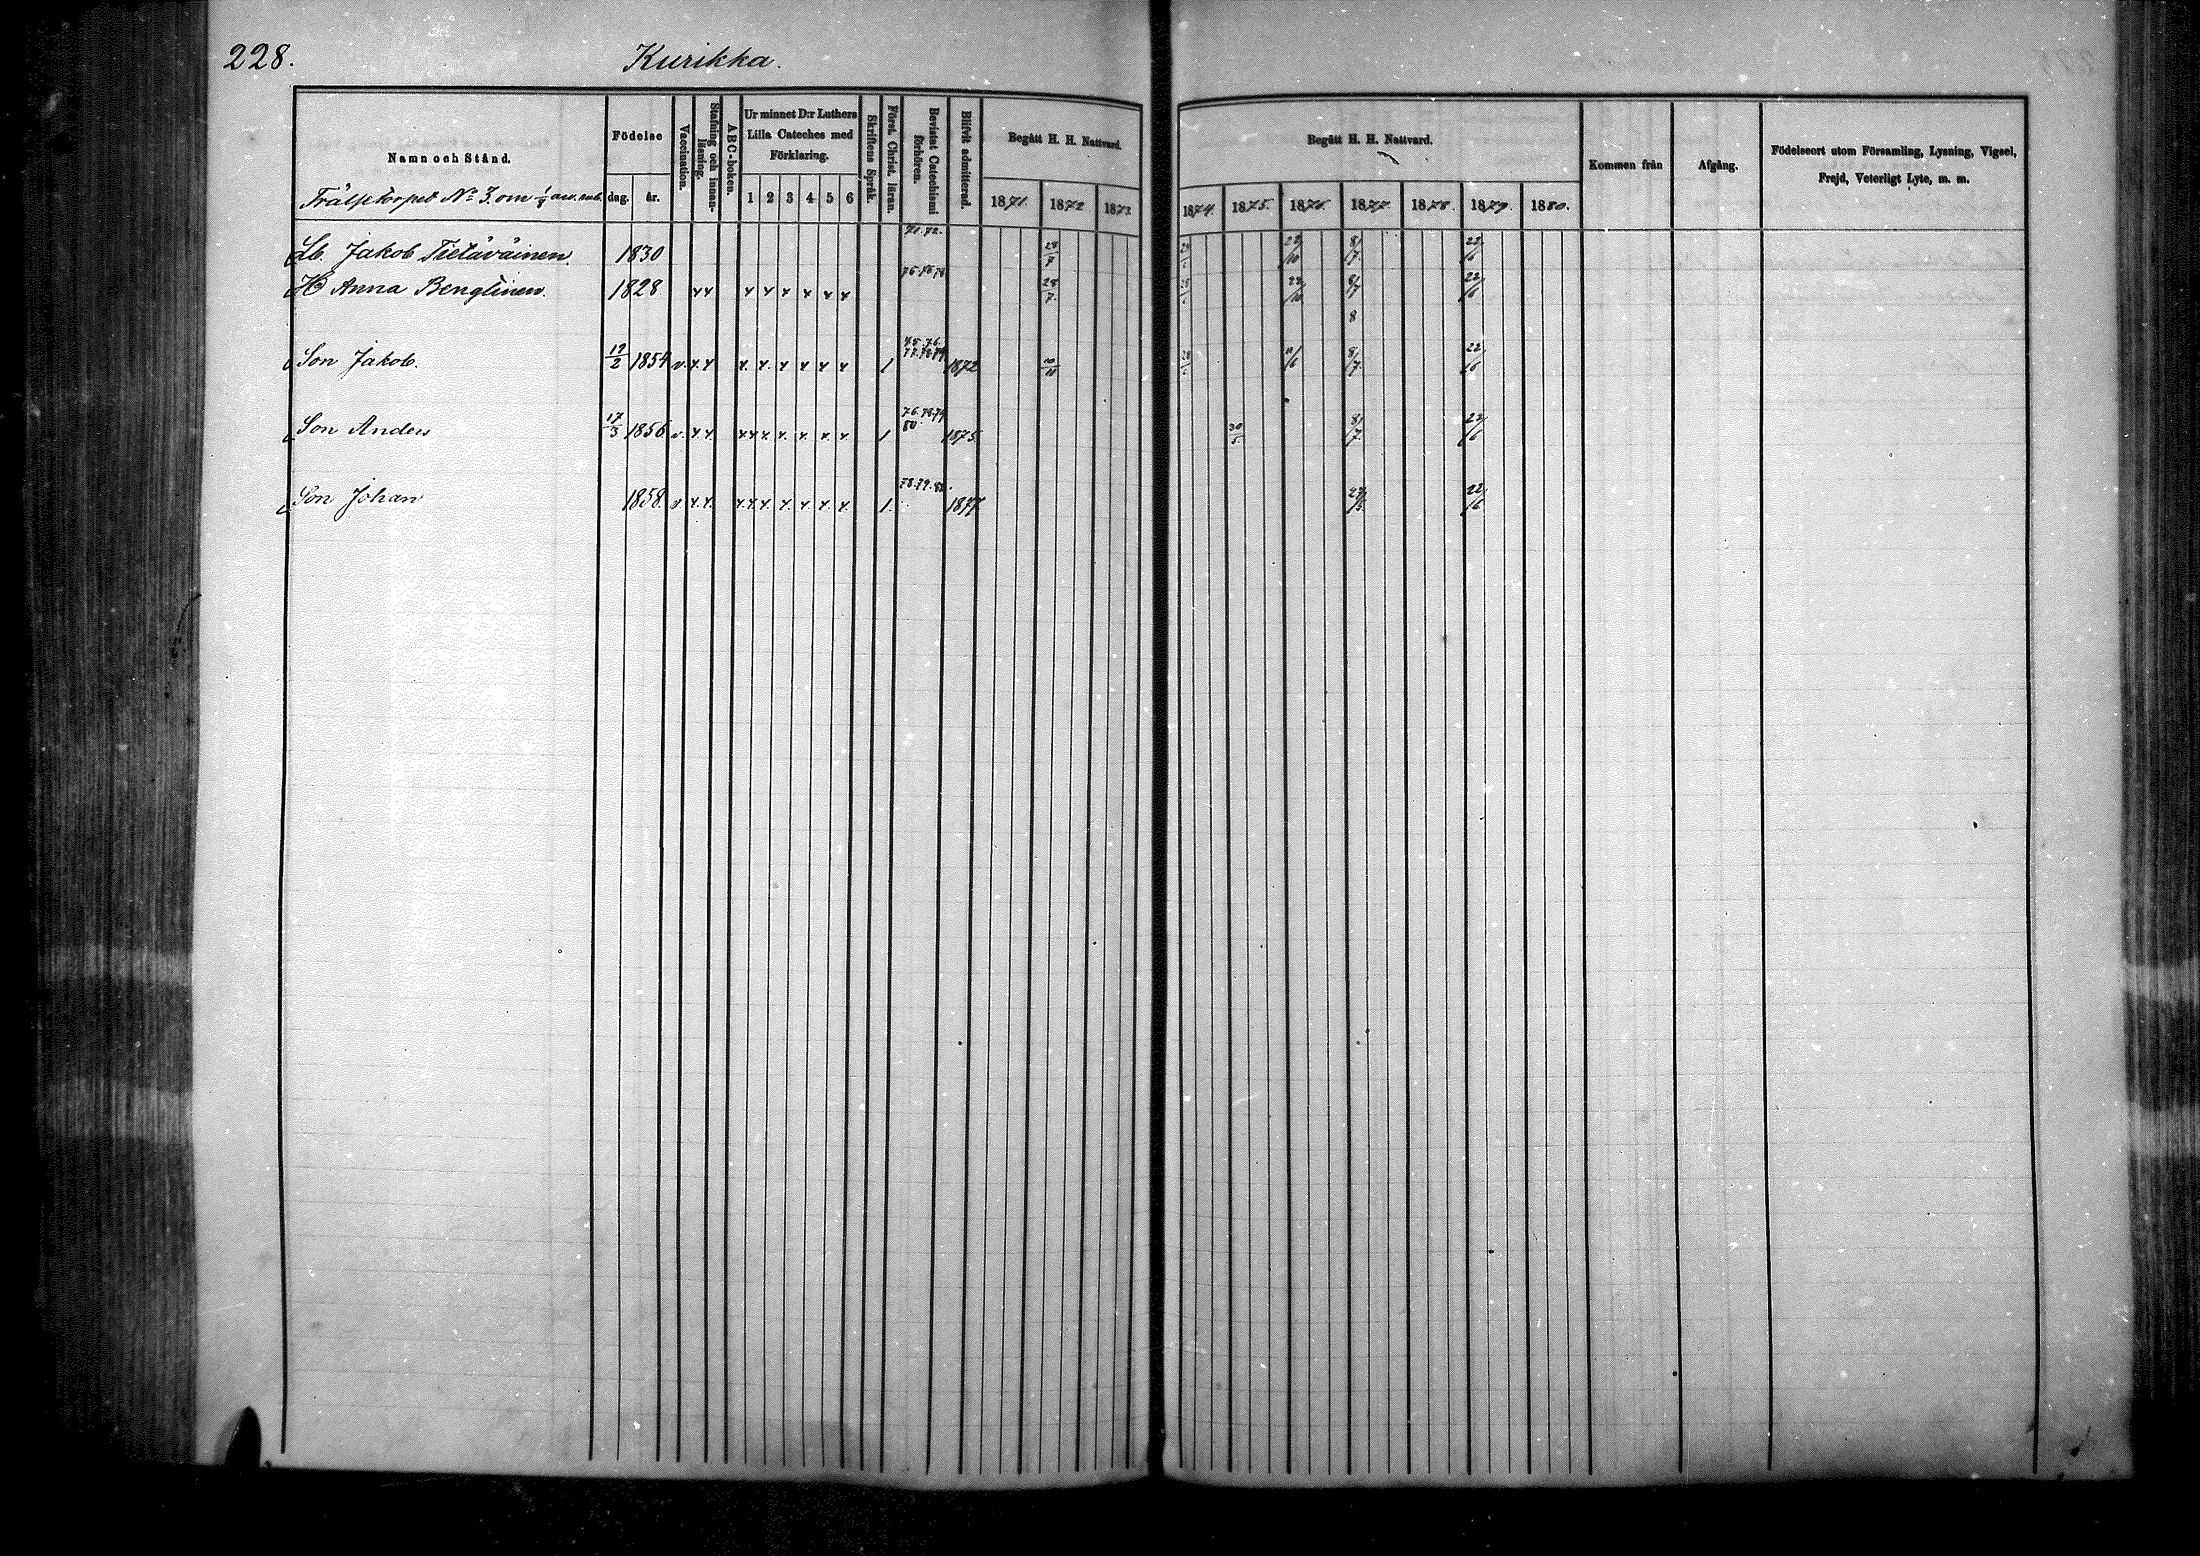 228. Kurikka.
Namn och Stånd. Födelse dag. år. Vaccination. Stafning och innanläsning. ABC-boken. Ur minnet D:r Luthers Lilla Cateches med Förklaring. 1 2 3 4 5 6 Skriftens Språk. Först. Christ. läran. Bevistat Catechismi förhören. Blifvit admitterad. Begått H. H. Nattvard. 1871. 1872 1873 Begått H. H. Nattvard. 1874. 1875. 1876. 1877. 1878. 1879. 1880. Kommen från Afgång. Födelseort utom Församling, Lysning, Vigsel, Frejd, Veterligt Lyte, m. m.
N:o 3. om
71. 72.
Jakob 1830 28/7 22/10 8/7. 22/6
H Anna Bengtinen. 1828 28/7. 22/10 8/7 22/6
8
75. 76.
77. 78. 79
Son Jakob. 12/2 1854 v. 1 1872 10/11 8/7. 22/6
76. 78. 79
80.
Son Anders 17/3 1856 v. 1 1875 30/5 8/7. 22/6
78. 79. 80.
Son Johan 1858. v 1. 1877 22/6